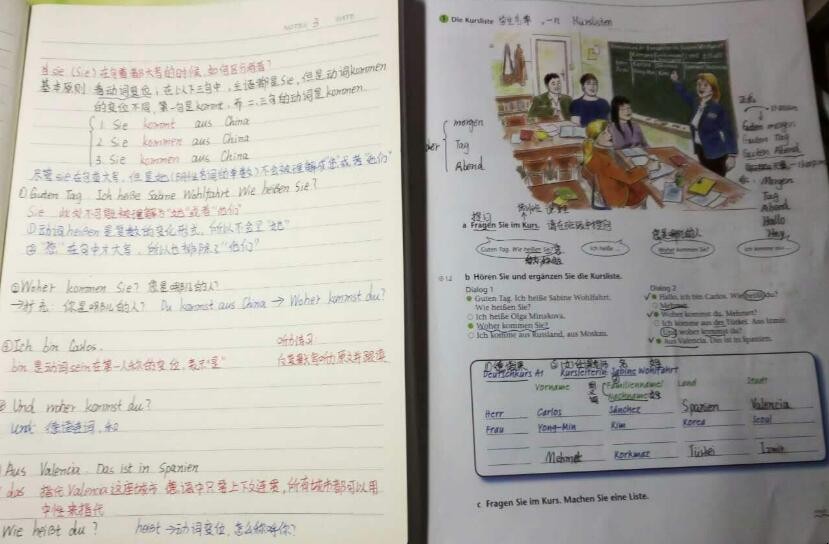 NOTES 3 DATE
当 sie (Sie) 在句首都大写的时候, 如何区分两者?
基本原则: 看动词变位; 在以下三句中, 主语都是Sie, 但是动词kommen
的变位不同, 第一句是kommt, 而二、三句的动词是kommen.
1. Sie kommt aus China
2. Sie kommen aus China
3. Sie kommen aus China
① Guten Tag. Ich heiße Sabine Wohlfahrt. Wie heißen Sie?
Sie 此处不可能被理解为"她"或者"他们"
① 动词heißen是复数的变化形式, 所以不会是"她"
② "您"在句中才大写, 所以也排除了"他们"
② Woher kommen Sie? 您是哪儿的人?
→扩充: 你是哪儿的人? Du kommst aus China → Woher kommst du?
Ich bin Carlos.
bin 是动词sein在第一人称的变位, 表示"是"
听力练习
Und woher kommst du?
und 连词, 和
Aus Valencia. Das ist in Spanien
das 指代Valencia这座城市
中性来指代
Wie heißt du? heißt →动词变位, 怎么称呼你?
Die Kursliste 学生名单, -n Kurslisten
morgen
Tag
Abend
Guten morgen
Guten Tag
Guten Abend
Morgen
Tag
Abend
Hallo
Hey
提问
a Fragen Sie im Kurs. 请在班级中提问
您是哪儿的人
Guten Tag. Wie heißen Sie?
Ich heiße ...
Woher kommen Sie?
Ich komme aus ...
1.2 b Hören Sie und ergänzen Sie die Kursliste.
Dialog 1
Guten Tag. Ich heiße Sabine Wohlfahrt.
Wie heißen Sie?
Ich heiße Olga Minakova.
Woher kommen Sie?
Ich komme aus Russland, aus Moskau.
Dialog 2
Hallo, ich bin Carlos. Wie heißt du?
Mehmet.
Woher kommst du, Mehmet?
Ich komme aus der Türkei. Aus Izmir.
Und woher kommst du?
Aus Valencia. Das ist in Spanien.
Deutschkurs A1 Kursleiterin: Sabine Wohlfahrt
Vorname Familienname/ Land Stadt
Nachname 姓
Herr Carlos Sánchez Spanien Valencia
Frau Yong-Min Kim Korea Seoul
Mehmet Korkmaz Türkei Izmir
c Fragen Sie im Kurs. Machen Sie eine Liste.